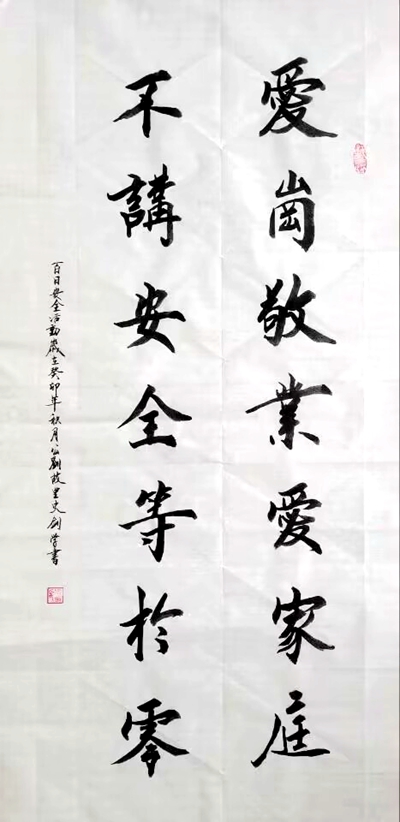 愛崗敬業愛家庭
不講安全等於零
百日安全活動歲在癸卯年秋月公劉故里史劍學書